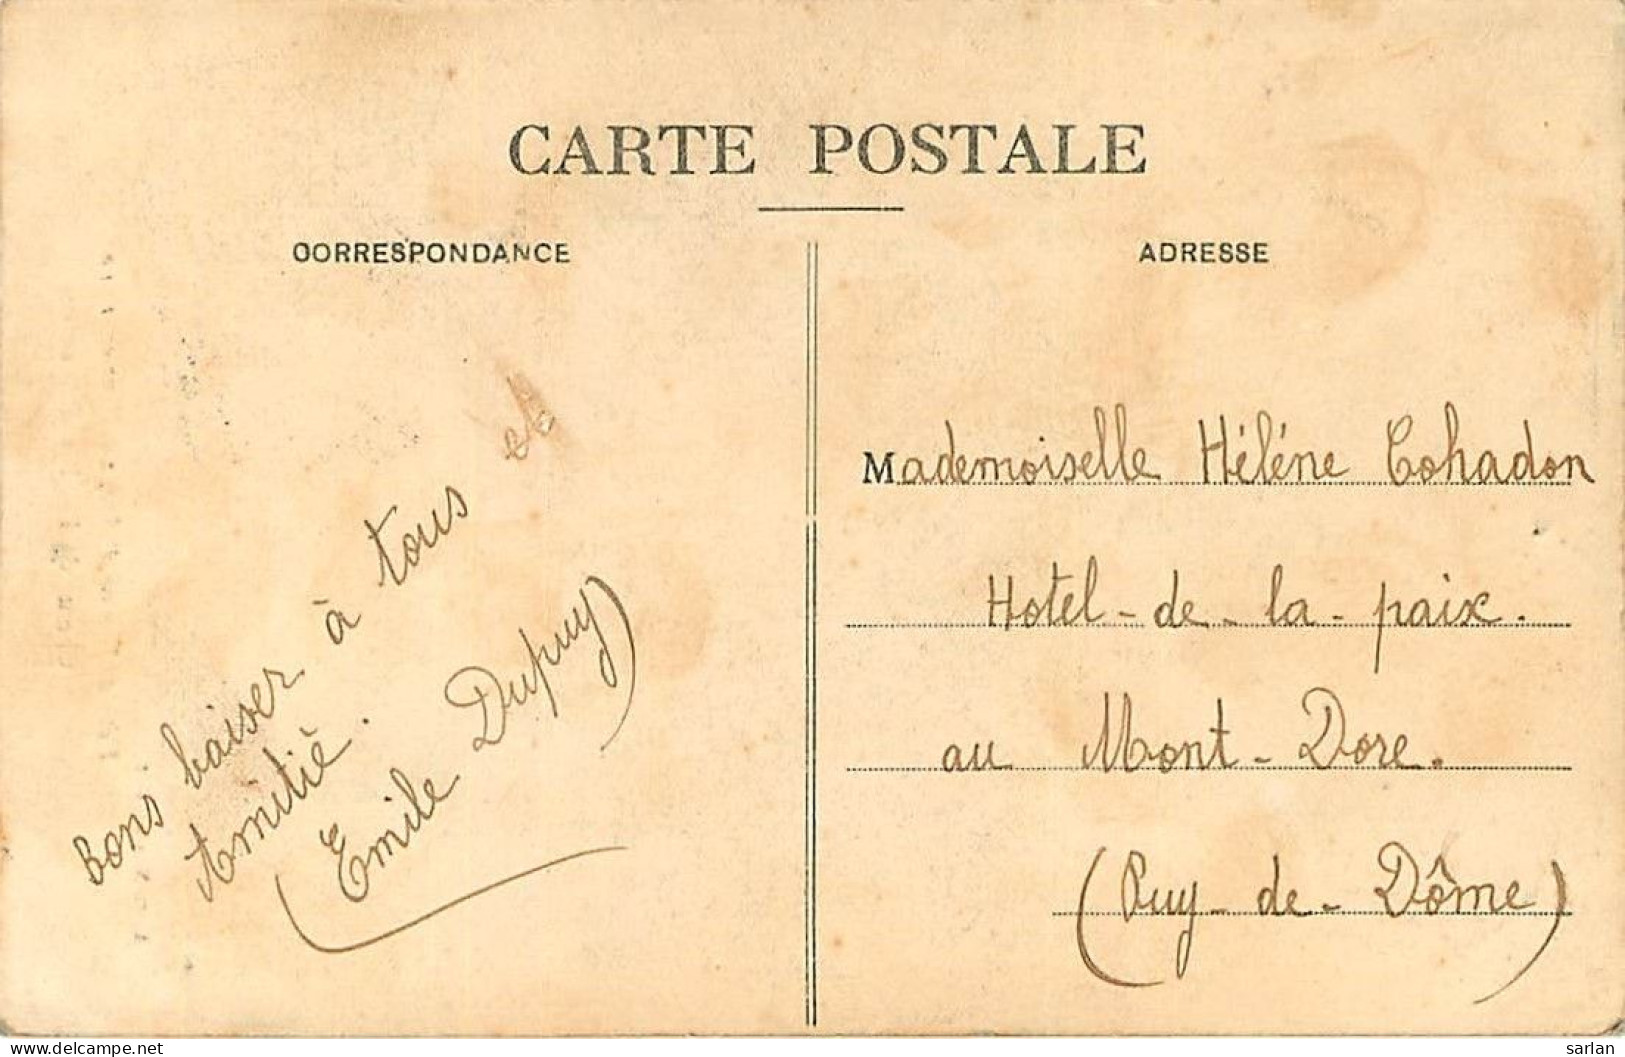 CARTE POSTALE
CORRESPONDANCE
ADRESSE
Bons baiser à tous et
Amitiè.
(Emile Dupuy)
Mademoiselle Héléne Cohadon
Hotel-de-la-paix.
au Mont-Dore.
(Puy-de-Dôme)
www.delcampe.net
sarlan